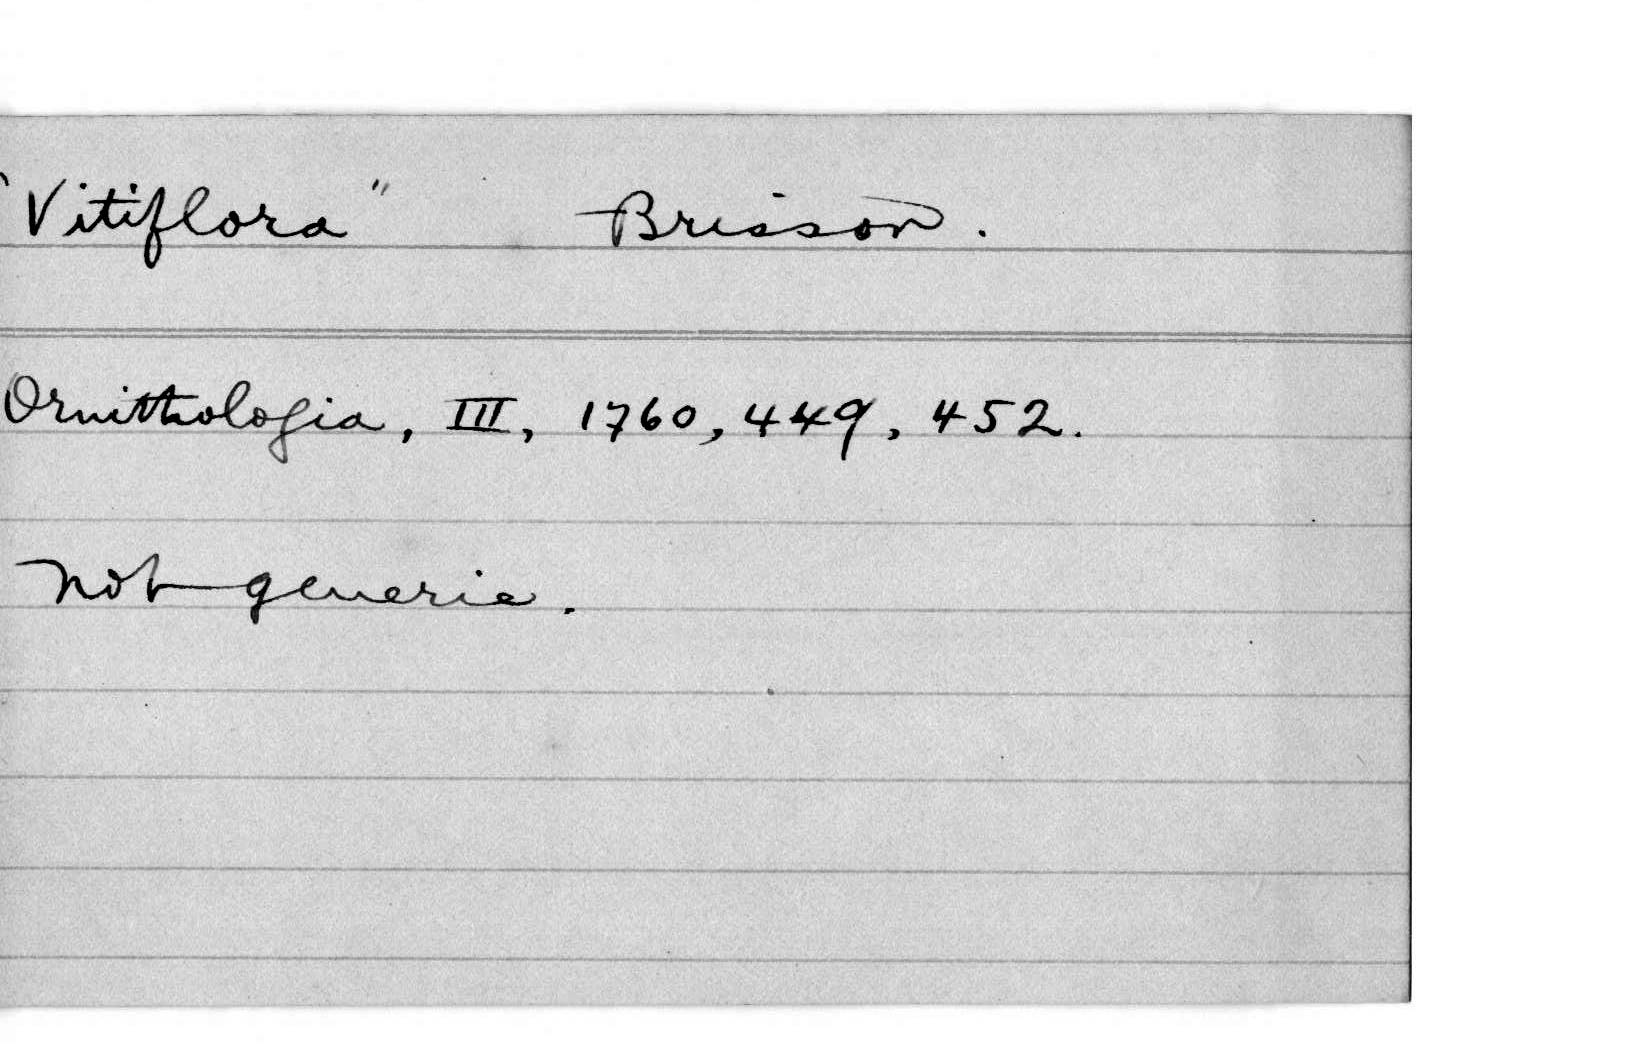 "Vitiflora" Brisson.
Ornithologia, III, 1760, 449, 452.
Not generic.